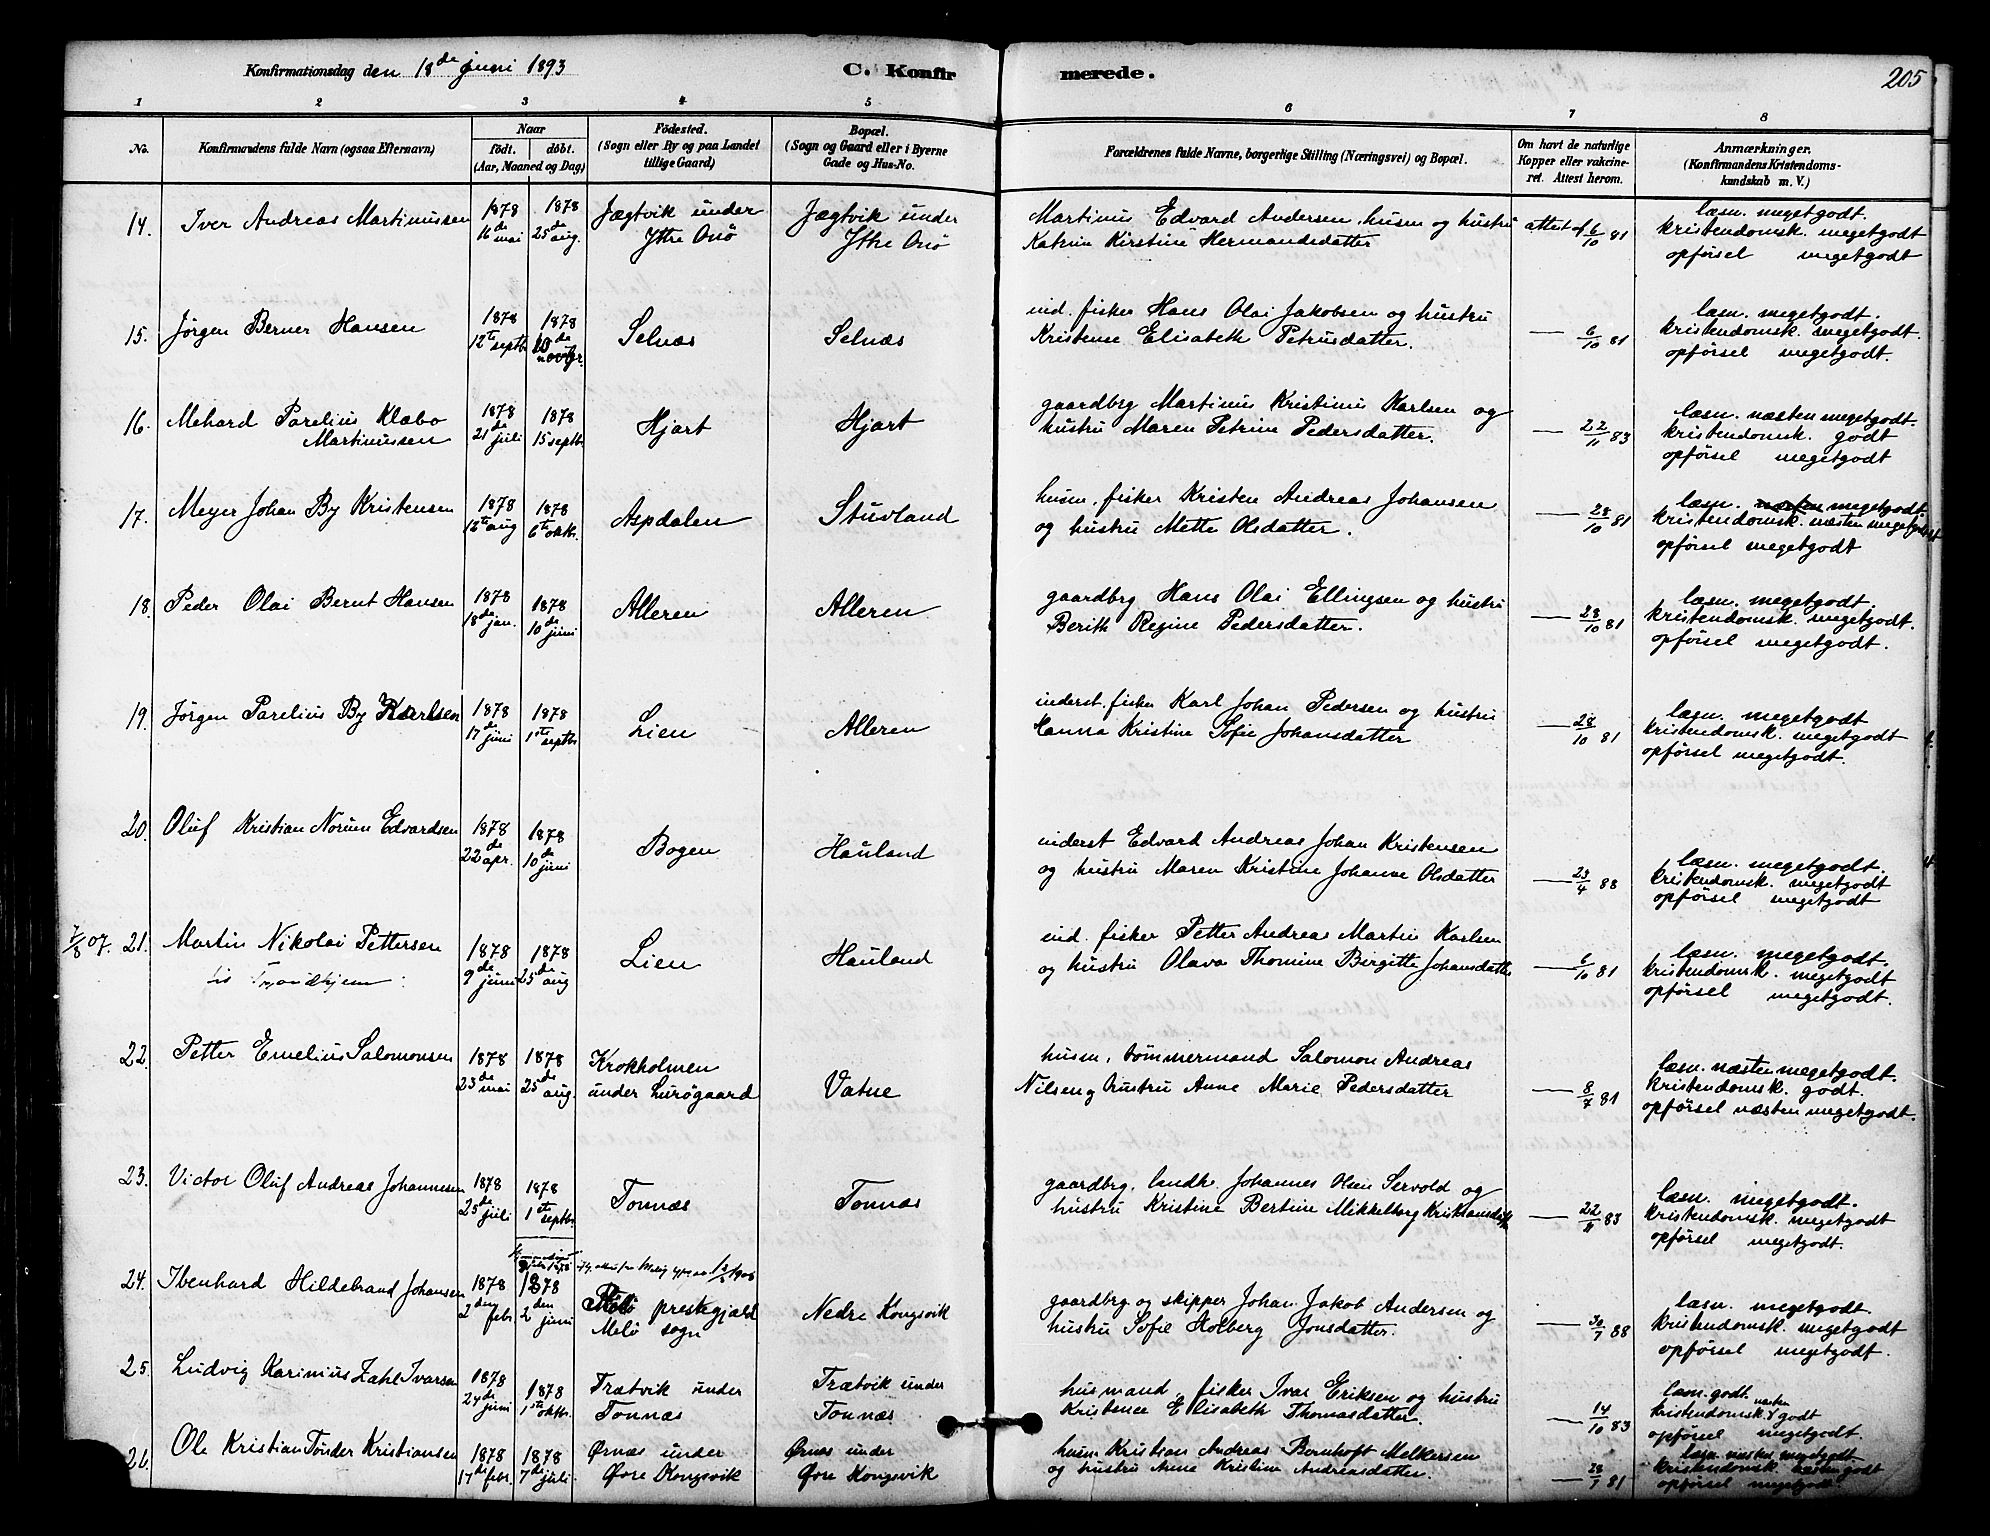 Konfirmationsdag den 18de juni 1893
C. Konfirmerede.
205
1 2 3 4 5 6 7 8
No.
Konfirmandens fulde Navn (ogsaa Efternavn).
Naar
födt. döbt.
(Aar, Maaned og Dag)
Födested.
(Sogn eller By og paa Landet
tillige Gaard)
Bopæl.
(Sogn og Gaard eller i Byerne
Gade og Hus-No.
Forældrenes fulde Navne, borgerlige Stilling (Næringsvei) og Bopæl.
Om havt de naturlige
Kopper eller vakcine-
ret. Attest herom.
Anmærkninger.
(Konfirmandens Kristendoms-
kundskab m. V.)
14. Iver Andreas Martinussen
1878 16de mai
1878 25de aug.
Jægtvik under
Ytre Onö
Jægtvik under
Ytre Onö
Martinus Edvard Andersen, husm og hustru
Katrin Kirstine Hermandsdatter
attest af 6/10 81
læsn. megetgodt.
kristendomsk. megetgodt
opførsel megetgodt
15. Jörgen Berner Hansen
1878 12te septb.
1878 10de novbr.
Selnæs
Selnæs
ind. fisker Hans Olai Jakobsen og hustru
Kristense Elisabeth Petrusdatter.
— 6/10 81
læsn. megetgodt.
kristendomsk. megetgodt.
opførsel megetgodt.
16. Mehard Parelius Klæbo
Martinussen
1878 21de juli
1878 15 septb.
Hjart
Hjart
gaardbrg Martinus Kristinus Karlsen og
hustru Maren Petrine Pedersdatter.
— 22/11 83
læsn. næsten megetgodt.
kristendomsk. godt
opførsel megetgodt
17. Meyer Johan By Kristensen
1878 12te aug
1878 6te oktb.
Aspdalen
Stuvland
husm. fisker Kristen Andreas Johansen
og hustru Mette Olsdatter.
— 28/10 81
læsn. næsten megetgodt.
kristendomsk. næsten megetgodt
opførsel megetgodt
18. Peder Olai Bernt Hansen
1878 18de jan.
1878 10de juni
Alleren
Alleren
gaardbrg Hans Olai Ellingsen og hustru
Berith Regine Pedersdatter.
— 28/10 81
læsn. megetgodt.
kristendomsk. megetgodt.
opførsel megetgodt.
19. Jörgen Parelius By Karlsen
1878 17de juni
1878 1ste septb.
Lien
Alleren
inderst. fisker Karl Johan Pedersen og hustru
Hanna Kristine Sofie Johansdatter
— 28/10 81
læsn. megetgodt
kristendomsk. megetgodt
opførsel megetgodt.
20. Oluf Kristian Norum Edvardsen
1878 22de apr.
1878 10de juni
Bogen
Hauland
inderst Edvard Andreas Johan Kristensen
og hustru Maren Kristine Johanne Olsdatter
— 23/4 88
læsn. megetgodt.
kristendomsk. megetgodt
opførsel megetgodt
7/8 07. 21. Martin Nikolai Pettersen
til Trondhjem
1878 9de juni
1878 25de aug
Lien
Hauland
ind. fisker Petter Andreas Martin Karlsen
og hustru Olava Thomine Birgitte Johansdatter
— 6/10 81
læsn. megetgodt.
kristendomsk. megetgodt
opførsel megetgodt.
22. Petter Emelius Salomonsen
1878 23de mai
1878 25de aug.
Krokholmen
under Lurögaard
Vatne
husm. tømmermand Salomon Andreas
Nilsen og hustru Anne Marie Pedersdatter
— 8/7 81
læsn. næsten megetgodt.
kristendomsk. godt.
opførsel næsten megetgodt.
23. Victor Oluf Andreas Johannesen
1878 25de juli
1878 1ste septb.
Tonnæs
Tonnæs
gaardbrg. landh. Johannes Olsen Servold og
hustru Kristine Bertine Mikkelborg Kristiansdatter
— 22/11 83
læsn. megetgodt.
kristendomsk. megetgodt
opførsel megetgodt.
24. Ibenhard Hildebrand Johansen
1878 2den febr.
1878 2den juni
Melö prestegjæld
Melö sogn
Nedre Kongsvik
gaardbrg og skipper Johan Jakob Andersen og
hustru Sofie Holberg Jonsdatter.
— 30/7 88
læsn. megetgodt.
kristendomsk. megetgodt
opførsel megetgodt.
25. Ludvig Karinius Zahl Ivarsen
1878 24de juni
1878 1ste oktb.
Trætvik under
Tonnæs
Trætvik under
Tonnæs
husmand, fisker Ivar Eriksen og hustru
Kristence Elisabeth Thomasdatter.
— 14/10 83
læsn. godt.
kristendomsk. næsten godt
opførsel megetgodt.
26. Ole Kristian Tönder Kristiansen
1878 17de febr.
1878 7de juli
Ørnæs under
Øvre Kongsvik
Ørnæs under
Øvre Kongsvik
husm Kristian Andreas Bernhoft Melkersen
og hustru Anne Kristine Andreasdatter.
— 28/7 81
læsn. næsten megetgodt
kristendomsk. næsten godt
opførsel megetgodt.